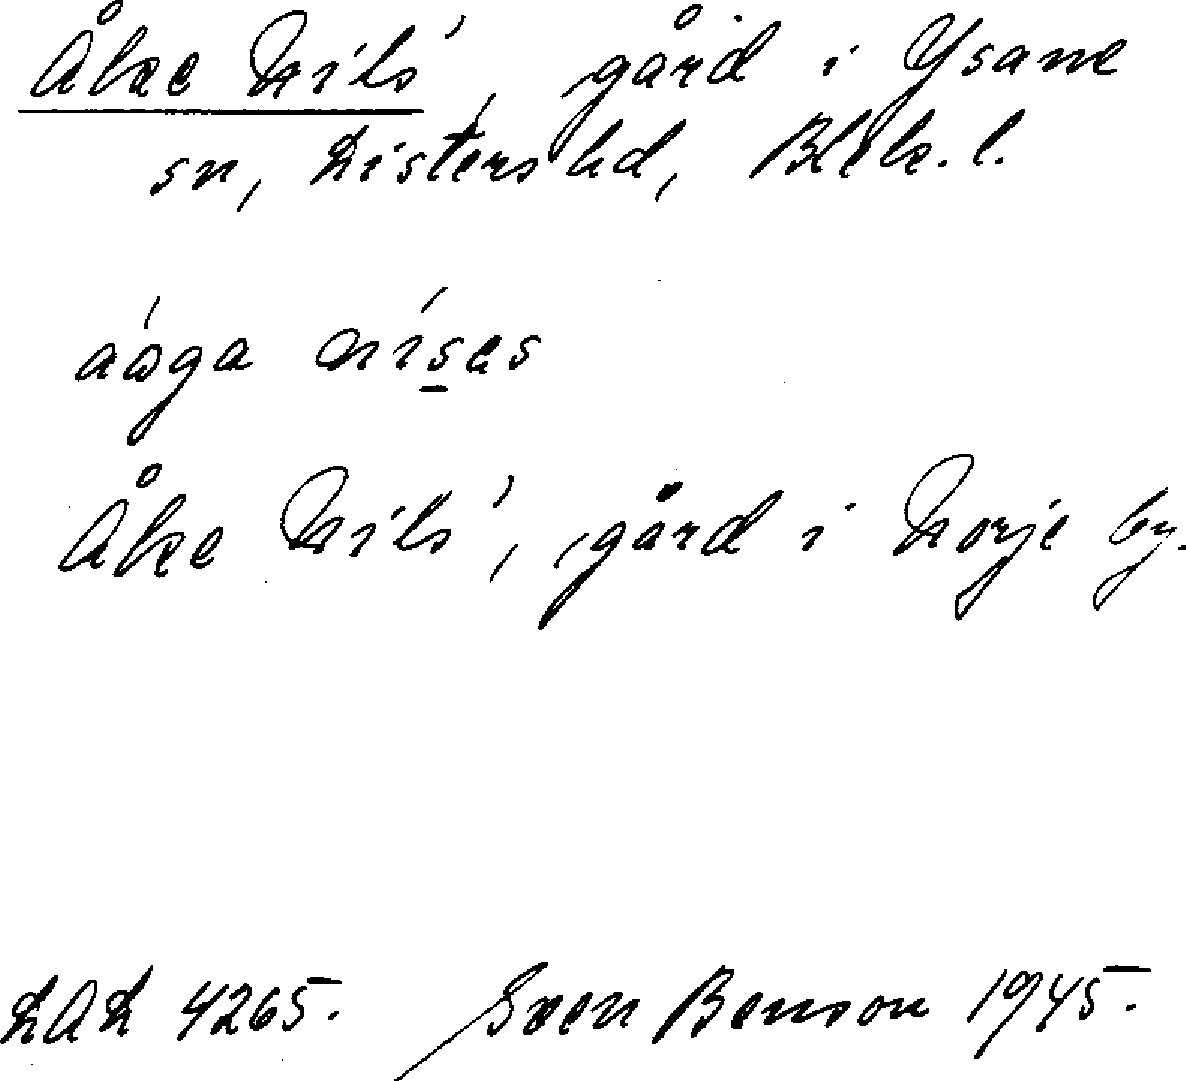 Åke Nils', gård i Ysane
sn, Listers hd, Blek. l.
Åke Nils', gård i Norje by.
LAL 4265. Sven Benson 1945.